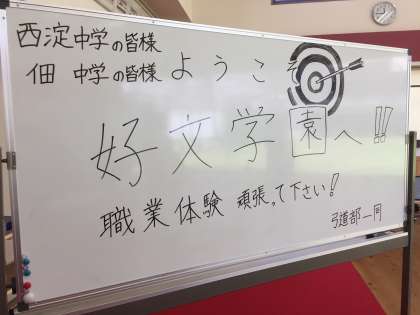 西淀中学の皆様
佃 中学の皆様 ようこそ
好文学園へ!!
職業体験 頑張って下さい!
弓道部一同